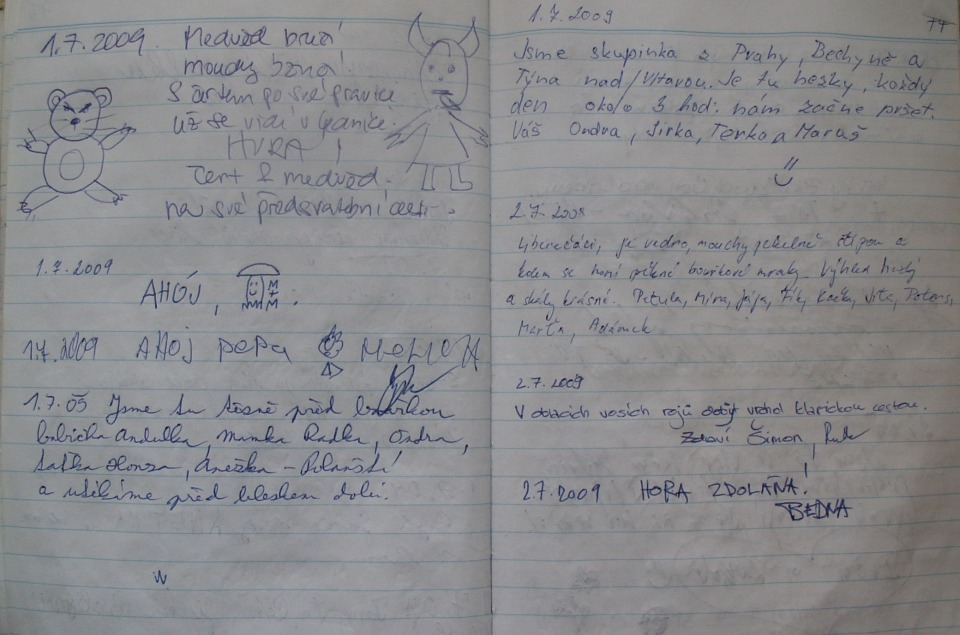 1.7.2009. Medvěd bručí
moudz bzučí!
S čertem po své pravici
už se vidí v Granice.
HURÁ!
Čert & medvěd.
na své předsvatební cestě.
1.7.2009
AHOJ,
1.7.2009 AHOJ PEPA
1.7.09 Jsme tu těsně před bouřkou
babička Andulka, mamka Radka, Ondra,
taťka Honza, Anežka - Polanští
a utíkáme před bleskem dolů.
1.7.2009
77
Jsme skupinka z Prahy, Bechyně a
Týna nad/Vltavou. Je tu hezky, každý
den okolo 3 hod. nám začne pršet.
Váš Ondra, Jirka, Terka a Maruš
2.7.2009
Liberečáci, je vedro, mouchy pekelně štípou a
kolem se honí pěkné bouřkové mraky. Výhled hezký
a skály krásné. Petula, Míra, Jája, Fík, Kačka, Víťa, Peters,
Marťa, Adámek
2.7.2009
V oblacích vosích rojů vrchol klasickou cestou.
Zdraví Šimon,
2.7.2009 HORA ZDOLÁNA!
BEDNA